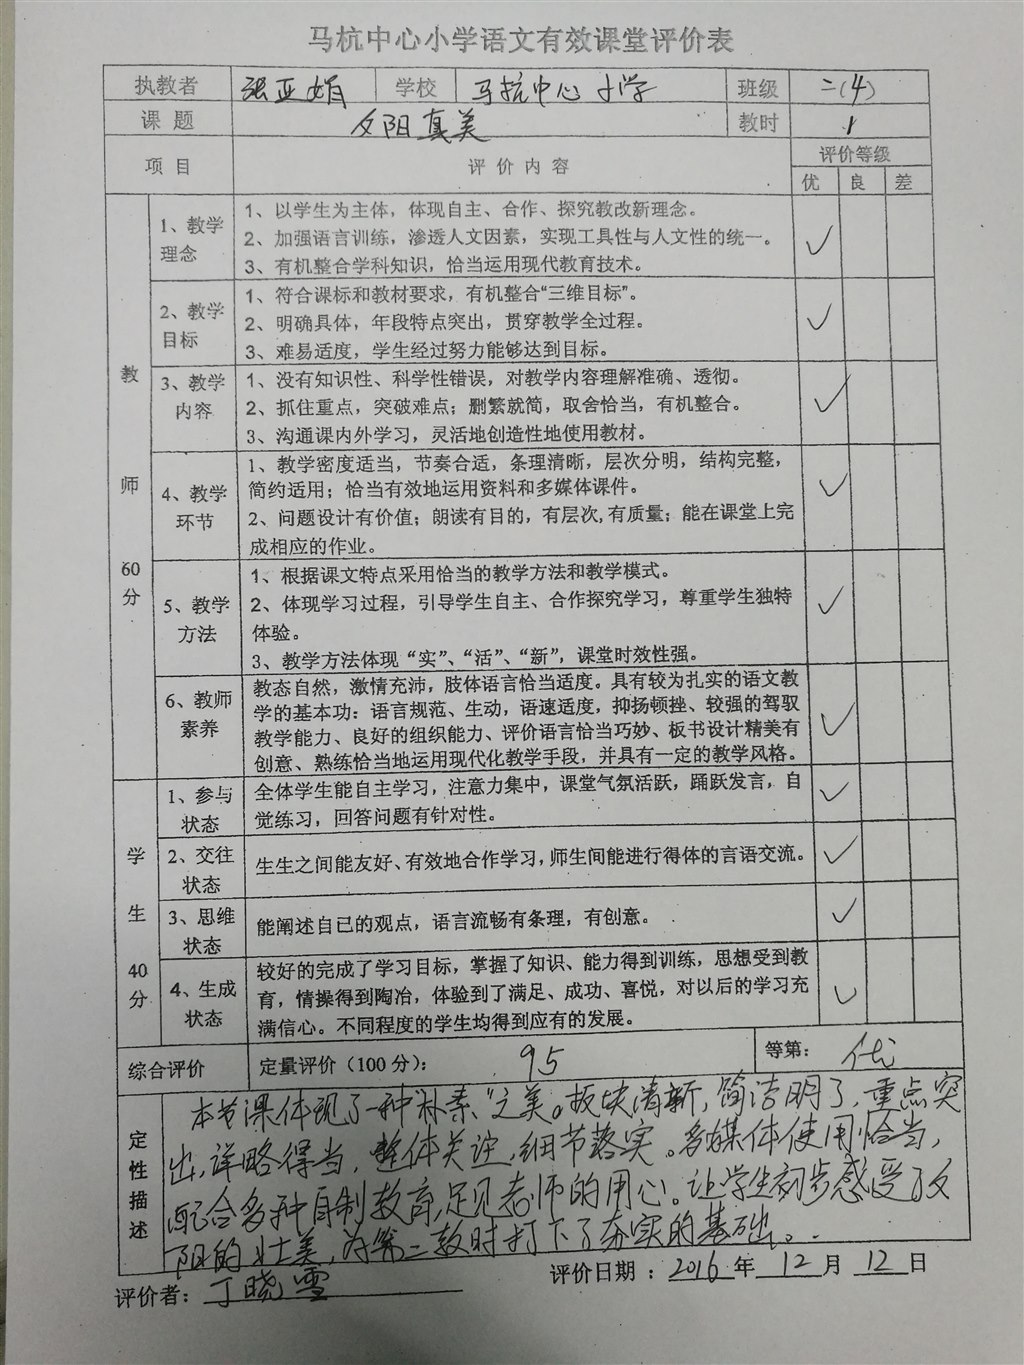 马杭中心小学语文有效课堂评价表
执教者 张亚娟 学校 马杭中心小学 班级 二(4)
课 题 夕阳真美 教时 1
项 目 评 价 内 容 评价等级
优 良 差
教师 60分
1、教学理念
1、以学生为主体，体现自主、合作、探究教改新理念。
2、加强语言训练，渗透人文因素，实现工具性与人文性的统一。
3、有机整合学科知识，恰当运用现代教育技术。
✓
2、教学目标
1、符合课标和教材要求，有机整合“三维目标”。
2、明确具体，年段特点突出，贯穿教学全过程。
3、难易适度，学生经过努力能够达到目标。
✓
3、教学内容
1、没有知识性、科学性错误，对教学内容理解准确、透彻。
2、抓住重点，突破难点；删繁就简，取舍恰当，有机整合。
3、沟通课内外学习，灵活地创造性地使用教材。
✓
4、教学环节
1、教学密度适当，节奏合适，条理清晰，层次分明，结构完整，
简约适用；恰当有效地运用资料和多媒体课件。
2、问题设计有价值；朗读有目的，有层次,有质量；能在课堂上完
成相应的作业。
✓
5、教学方法
1、根据课文特点采用恰当的教学方法和教学模式。
2、体现学习过程，引导学生自主、合作探究学习，尊重学生独特
体验。
3、教学方法体现“实”、“活”、“新”，课堂时效性强。
✓
6、教师素养
教态自然，激情充沛，肢体语言恰当适度。具有较为扎实的语文教
学的基本功：语言规范、生动，语速适度，抑扬顿挫、较强的驾驭
教学能力、良好的组织能力、评价语言恰当巧妙、板书设计精美有
创意、熟练恰当地运用现代化教学手段，并具有一定的教学风格。
✓
学生 40分
1、参与状态
全体学生能自主学习，注意力集中，课堂气氛活跃，踊跃发言，自
觉练习，回答问题有针对性。
✓
2、交往状态
生生之间能友好、有效地合作学习，师生间能进行得体的言语交流。
✓
3、思维状态
能阐述自已的观点，语言流畅有条理，有创意。
✓
4、生成状态
较好的完成了学习目标，掌握了知识、能力得到训练，思想受到教
育，情操得到陶冶，体验到了满足、成功、喜悦，对以后的学习充
满信心。不同程度的学生均得到应有的发展。
✓
综合评价 定量评价（100分）： 95 等第： 优
定性描述
本节课体现了一种“朴素”之美。板块清新，简洁明了，重点突
出，详略得当，整体关注，细节落实。多媒体使用恰当，
配合多种自制教育，足见老师的用心。让学生初步感受了夕
阳的壮美，为第二教时打下了夯实的基础。
评价者：丁晓雪 评价日期：2016年12月12日